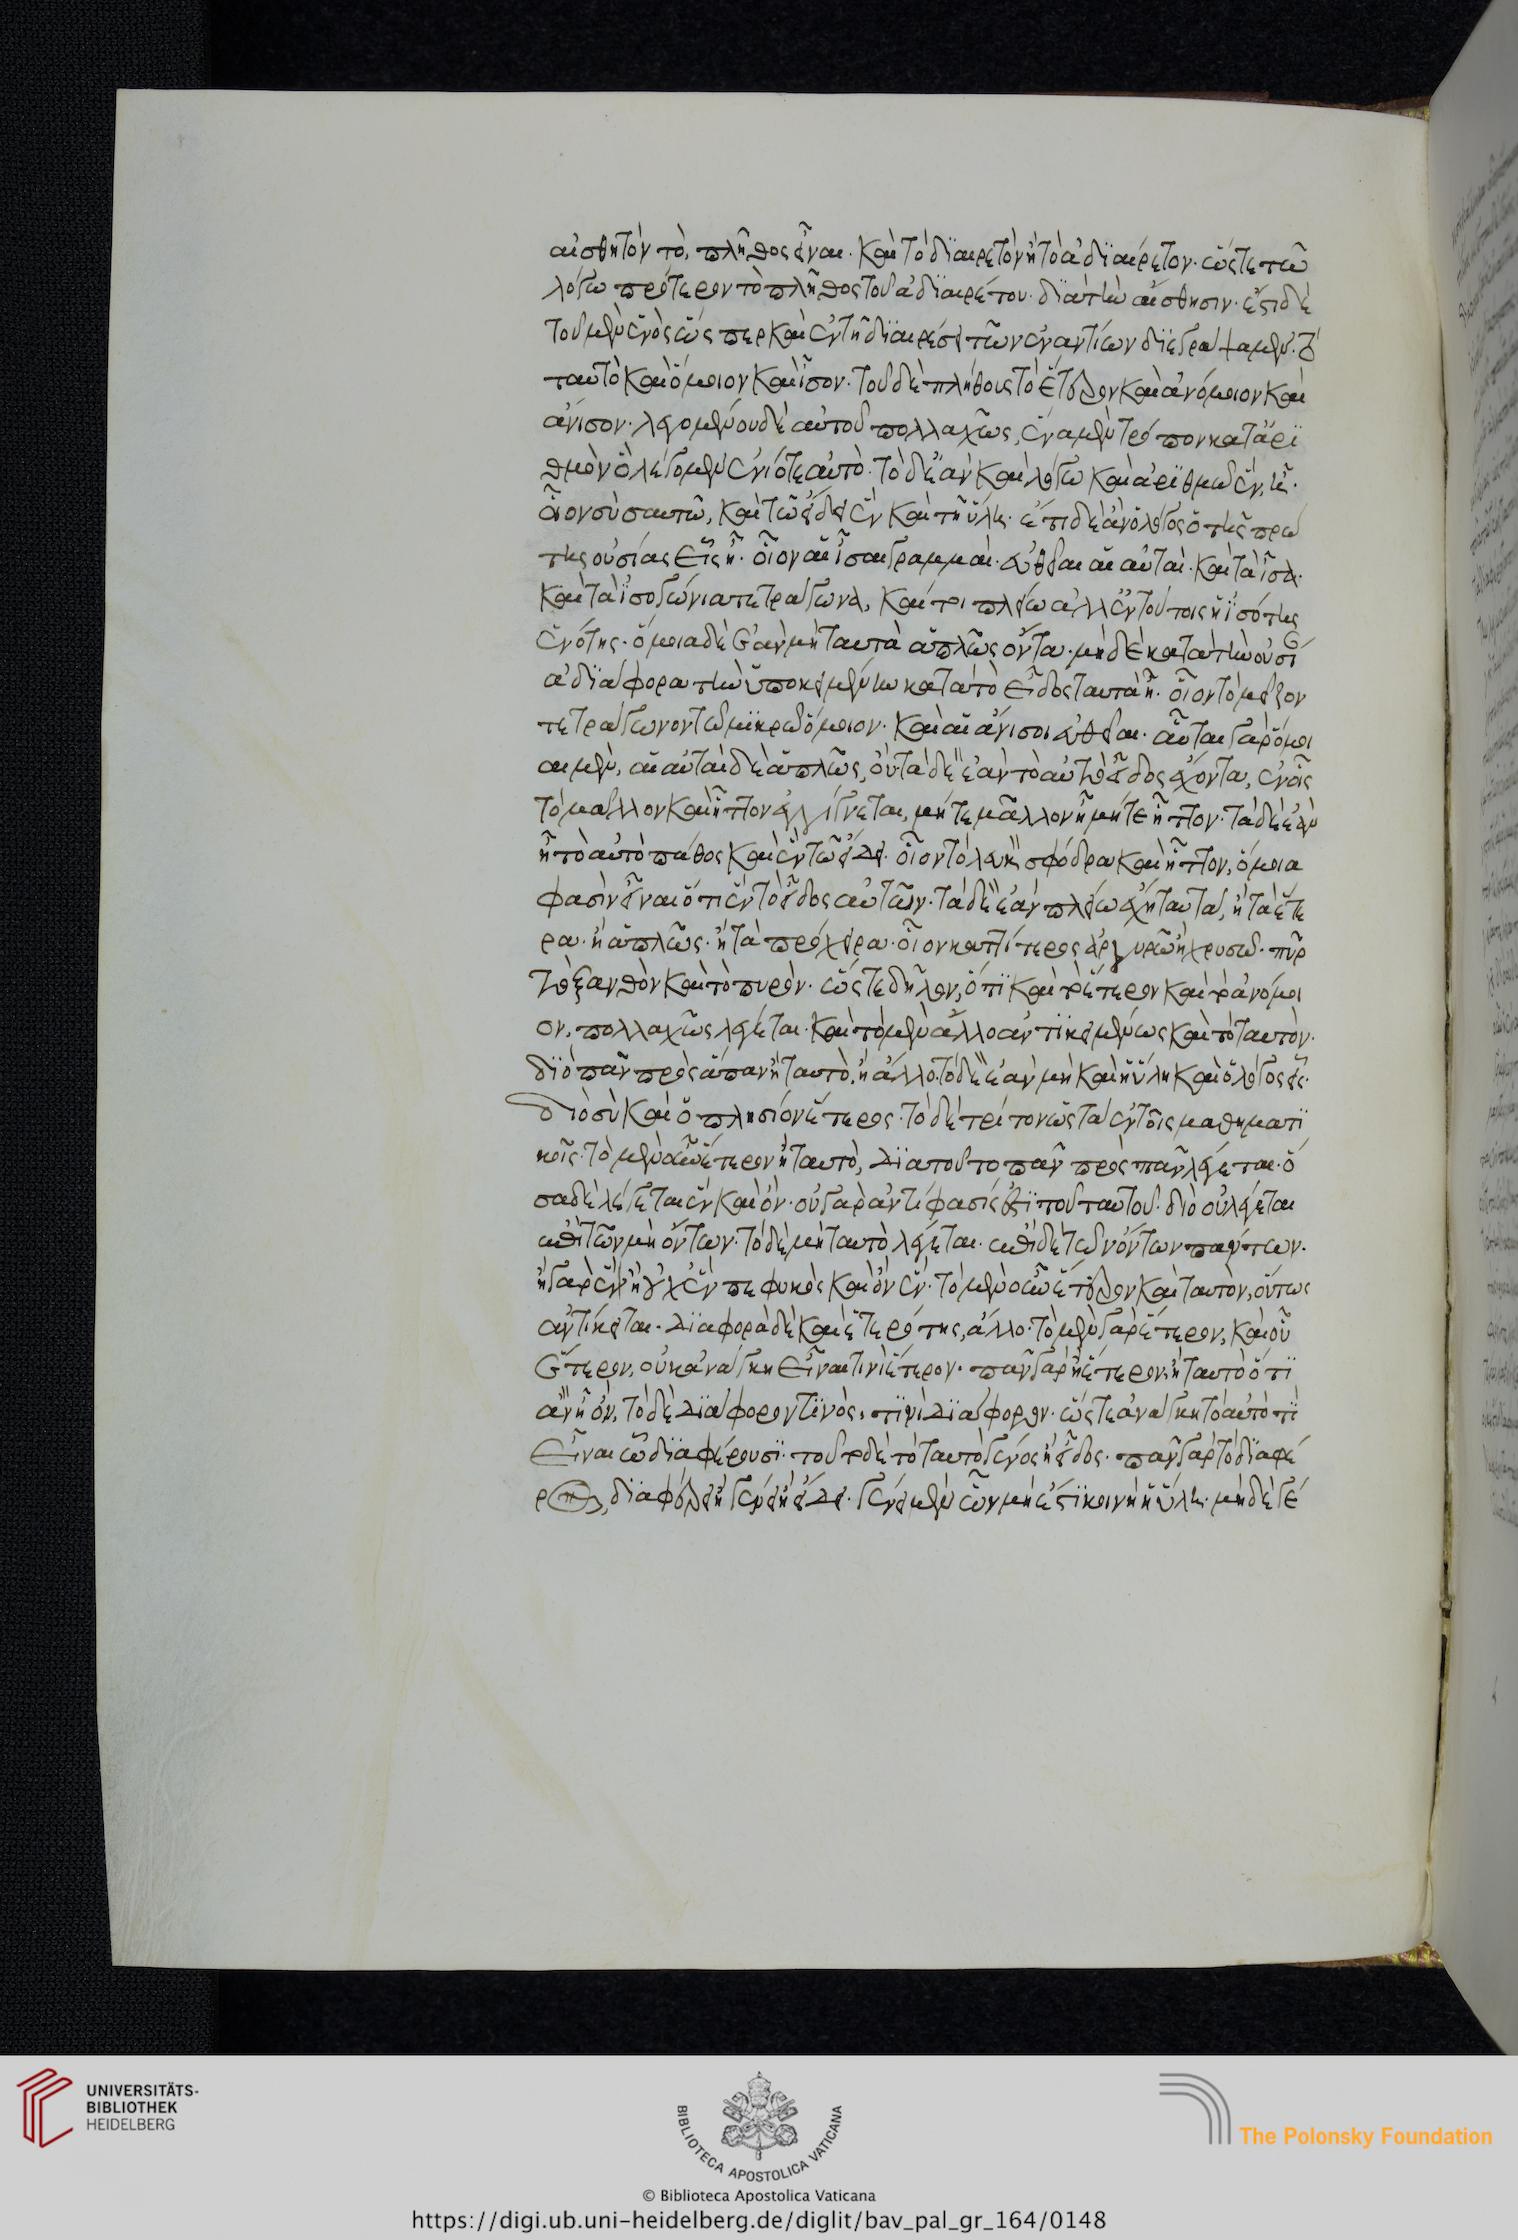 αἰσθητὸν τὸ, πλῆθος εἶναι· καὶ τὸ διαιρετὸν ἢ τὸ ἀδιαίρετον· ὥστε τῶ
λόγω πρότερον τὸ πλῆθος τοῦ ἀδιαιρέτου· διὰ τὴν αἴσθησιν· ἔστι δὲ
τοῦ μὲν ἑνὸς ὥσπερ καὶ ἐν τῆ διαιρέσει τῶν ἐναντίων διεγράψαμεν· τὸ
ταυτὸ καὶ ὅμοιον καὶ ἴσον· τοῦ δὲ πλήθους τὸ ἕτερον καὶ ἀνόμοιον καὶ
ἄνισον· λεγομένου δὲ αὐτοῦ πολλαχῶς, ἕνα μὲν τρόπον κατ' ἀρι
θμὸν ὃ λέγομεν ἐνίοτε αὐτό· τὸ δὲ ἂν καὶ λόγω καὶ ἀριθμῶ ἓν, ἦ·
οἷον σὺ σαυτῶ, καὶ τῶ εἴδει ἓν καὶ τῆ ὕλη· ἔτι δὲ ἂν ὁ λόγος ὁ τῆς πρώ
της οὐσίας εἷς ἦ· οἷον αἱ ἴσαι γραμμαὶ· εὐθεῖαι αἱ αὐταὶ· καὶ τὰ ἴσα·
καὶ τὰ ἰσογώνια τετράγωνα, καίτοι πλείω ἀλλ' ἐν τούτοις ἡ ἰσότης
ἑνότης· ὅμοια δὲ ἐὰν μὴ ταυτὰ ἁπλῶς ὄντα· μηδὲ κατὰ τὴν οὐσί
α διάφορα τὴν ὑποκειμένην κατὰ τὸ εἶδος ταυτὰ ἦ· οἷον τὸ μεῖζον
τετράγωνον τῶ μικρῶ ὅμοιον· καὶ αἱ ἄνισοι εὐθεῖαι· αὗται γὰρ ὅμοι
αι μὲν, αἱ αὐταὶ δὲ ἁπλῶς, οὔ· τὰ δὲ ἐὰν τὸ αὐτὸ εἶδος ἔχοντα, ἐν οἷς
τὸ μᾶλλον καὶ ἧττον ἐγγίγνεται, μήτε μᾶλλον ἦ μήτε ἧττον· τὰ δὲ ἐὰν
ἦ τὸ αὐτὸ πάθος καὶ ἓν τῶ εἴδει· οἷον τὸ λευκὸν σφόδρα καὶ ἧττον, ὅμοια
φασὶν εἶναι ὅτι ἓν τὸ εἶδος αὐτῶν· τὰ δὲ ἐὰν πλείω ἔχη ταυτὰ, ἢ τὰ ἕτε
ρα· ἢ ἁπλῶς· ἢ τὰ πρόχειρα· οἷον καττίτερος ἀργύρω ἢ χρυσῶ· πῦρ
τὸ ξανθὸν καὶ τὸ πυρὸν· ὥστε δῆλον, ὅτι καὶ τὸ ἕτερον καὶ τὸ ἀνόμοι
ον, πολλαχῶς λέγεται· καὶ τὸ μὲν ἄλλο ἀντικειμένως καὶ τὸ ταυτὸν·
διὸ πᾶν πρὸς ἅπαν ἢ ταυτὸ, ἢ ἄλλο· τὸ δὲ ἐὰν μὴ καὶ ἡ ὕλη καὶ ὁ λόγος εἷς·
διὸ σὺ καὶ ὁ πλησίον ἕτερος· τὸ δὲ τρίτον ὡς τὰ ἐν τοῖς μαθηματι
κοῖς· τὸ μὲν οὖν ἕτερον ἢ ταυτὸ, διὰ τοῦτο πᾶν πρὸς πᾶν λέγεται· ὅ
σα δὲ λέγεται ἓν καὶ ὄν· οὐ γὰρ ἀντίφασίς ἐστι τοῦ ταυτοῦ· διὸ οὐ λέγεται
ἐπὶ τῶν μὴ ὄντων· τὸ δὲ μὴ ταυτὸ λέγεται· ἐπὶ δὲ τῶν ὄντων πάντων·
ἢ γὰρ ἓν ἢ οὐχ ἓν πεφυκὸς καὶ ὂν ἕν· τὸ μὲν οὖν ἕτερον καὶ ταυτὸν, οὕτως
ἀντίκειται· διαφορὰ δὲ καὶ ἑτερότης, ἄλλο· τὸ μὲν γὰρ ἕτερον, καὶ οὗ
ἕτερον, οὐκ ἀνάγκη εἶναι τινὶ ἕτερον· πᾶν γὰρ ἢ ἕτερον ἢ ταυτὸ ὅ τι
ἂν ἦ ὂν, τὸ δὲ διάφορον τινὸς, τινὶ διάφορον· ὥστε ἀνάγκη τὸ αὐτό τι
εἶναι ὧ διαφέρουσι· τοῦτο δὲ τὸ ταυτὸ γένος ἢ εἶδος· πᾶν γὰρ τὸ διαφέ
ρον, διαφέρει ἢ γένει ἢ εἴδει· γένει μὲν ὧν μή ἐστι κοινὴ ἡ ὕλη· μηδὲ γέ
UNIVERSITÄTS-
BIBLIOTHEK
HEIDELBERG
BIBLIOTECA APOSTOLICA VATICANA
The Polonsky Foundation
© Biblioteca Apostolica Vaticana
https://digi.ub.uni-heidelberg.de/diglit/bav_pal_gr_164/0148